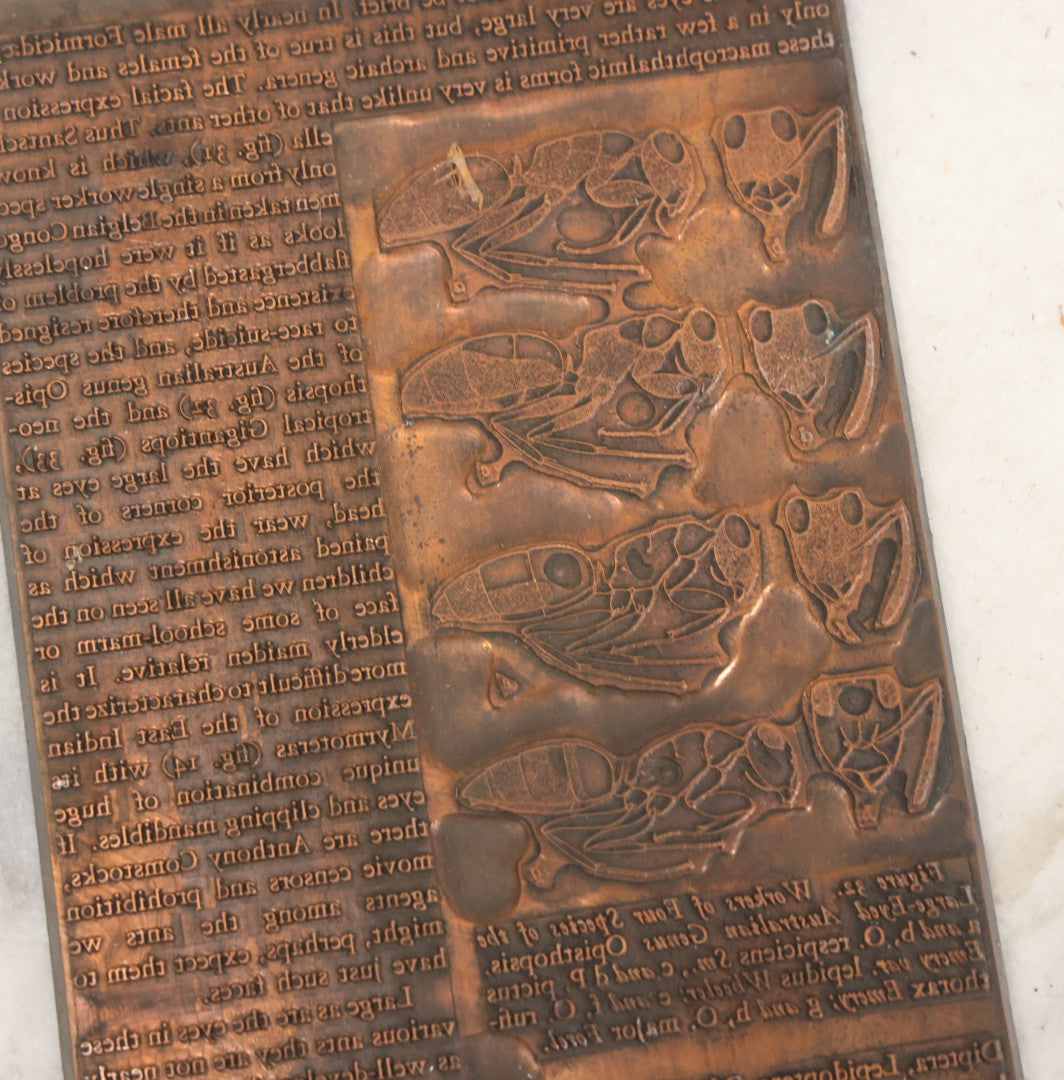 be brief. In nearly all male Formicidæ
eyes are very large, but this is true of the females and work
only in a few rather primitive and archaic genera. The facial expression
these macrophthalmic forms is very unlike that of other ants. Thus Santsch
ella (fig. 31), which is know
only from a single worker spec
men taken in the Belgian Congo
looks as if it were hopelessly
flabbergasted by the problem of
existence and therefore resigned
to race-suicide, and the species
of the Australian genus Opis-
thopsis (fig. 32) and the neo-
tropical Gigantiops (fig. 33),
which have the large eyes at
the posterior corners of the
head, wear the expression of
pained astonishment which as
children we have all seen on the
face of some school-marm or
elderly maiden relative. It is
more difficult to characterize the
expression of the East Indian
Myrmoteras (fig. 14) with its
unique combination of huge
eyes and clipping mandibles. If
there are Anthony Comstocks,
movie censors and prohibition
agents among the ants we
might, perhaps, expect them to
have just such faces.
Large as are the eyes in these
various ants they are not nearly
as well-develo
Figure 32. Workers of Four Species of the
Large-Eyed Australian Genus Opisthopsis.
a and b, O. respiciens Sm., c and d P. pictus
Emery var. lepidus Wheeler; e and f, O. rufi-
thorax Emery; g and h, O. major Forel.
Diptera, Lepidopter